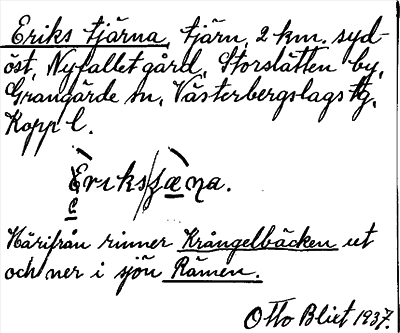 Eriks tjärna, tjärn, 2 km. syd-
öst, Nyfallet gård, Storslätten by,
Grangärde sn, Västerbergslags tg,
Kopp l.
Härifrån rinner Krångelbäcken ut
och ner i sjön Rämen.
Otto Blixt 1937.